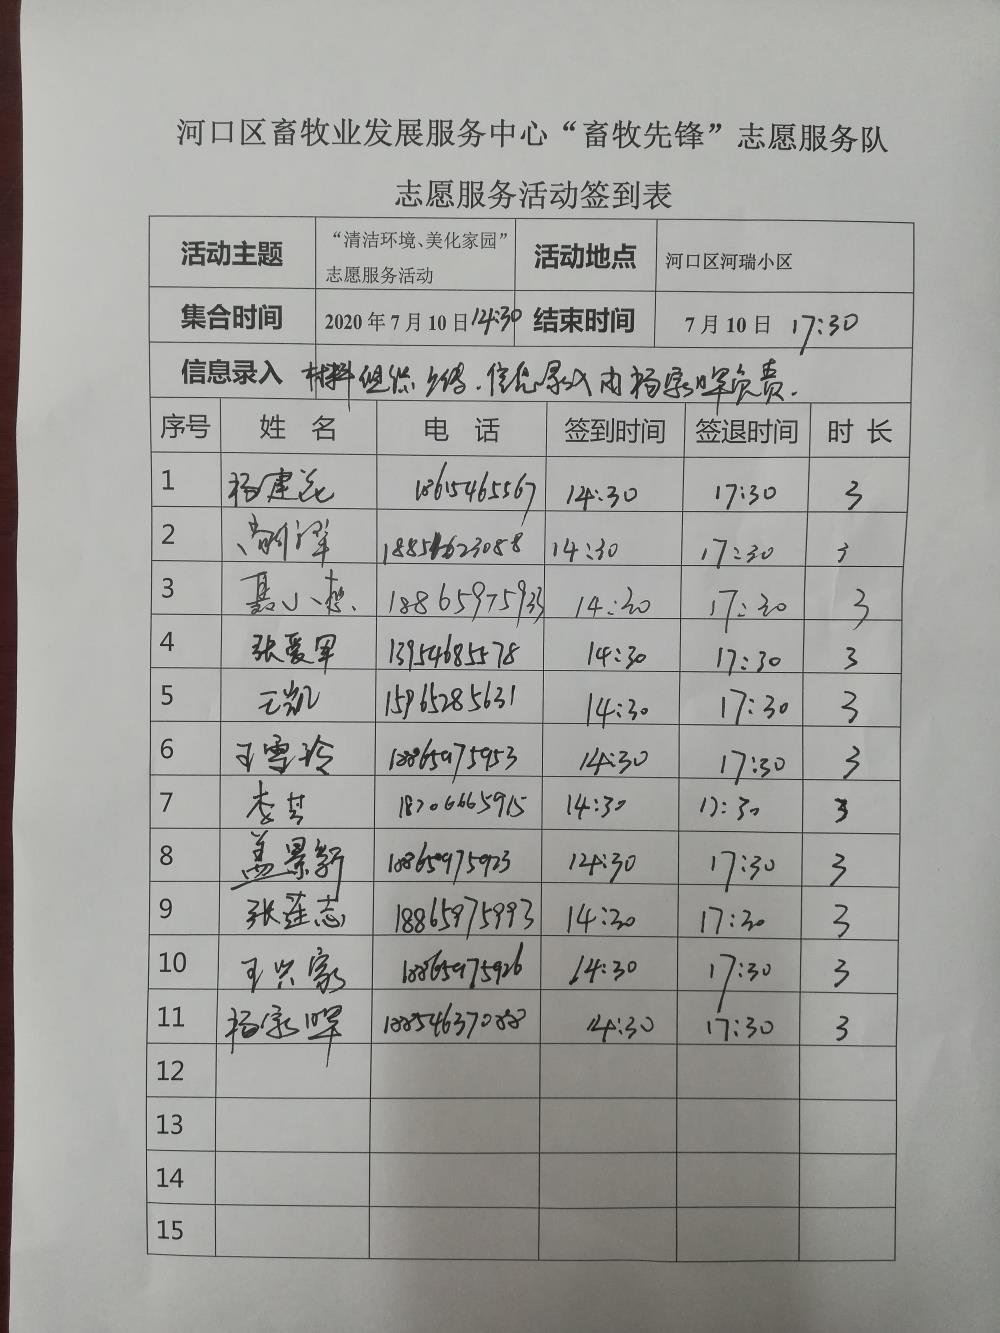 河口区畜牧业发展服务中心“畜牧先锋”志愿服务队
志愿服务活动签到表
活动主题 “清洁环境、美化家园” 志愿服务活动 活动地点 河口区河瑞小区
集合时间 2020年7月10日14:30 结束时间 7月10日 17:30
信息录入 材料组织上传、信息录入由杨家晖负责.
序号 姓名 电话 签到时间 签退时间 时长
1 杨建 18615465567 14:30 17:30 3
2 14:30 17:30 3
3 聂小 18865975933 14:30 17:30 3
4 张爱军 13954685578 14:30 17:30 3
5 王凯 15965285631 14:30 17:30 3
6 王雪玲 18865975953 14:30 17:30 3
7 李 18706665915 14:30 17:30 3
8 盖景新 18865975923 14:30 17:30 3
9 张莲志 18865975993 14:30 17:30 3
10 王兴家 18865975926 14:30 17:30 3
11 杨家晖 14:30 17:30 3
12
13
14
15